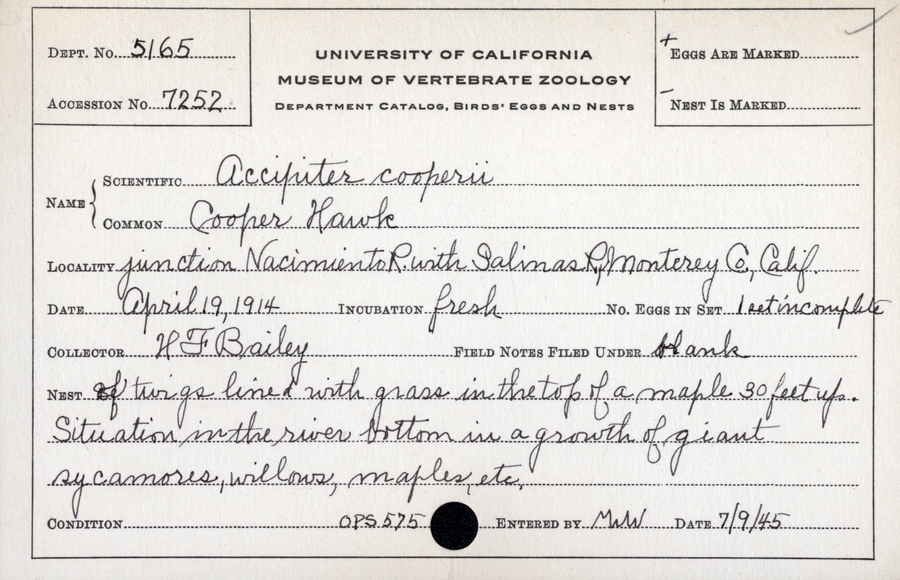 Dept. No. 5165
Accession No. 7252
UNIVERSITY OF CALIFORNIA
MUSEUM OF VERTEBRATE ZOOLOGY
Department Catalog, Birds' Eggs and Nests
+ Eggs Are Marked
- Nest Is Marked
Name { Scientific Accipiter cooperii
Common Cooper Hawk
Locality junction Nacimiento R. with Salinas R., Monterey Co., Calif.
Date April 19, 1914 Incubation fresh No. Eggs in Set 1 set incomplete
Collector H F Bailey Field Notes Filed Under blank
Nest of twigs lined with grass in the top of a maple 30 feet up.
Situation in the river bottom in a growth of giant
sycamores, willows, maples, etc.
Condition OPS 575 Entered by MWW Date 7/9/45